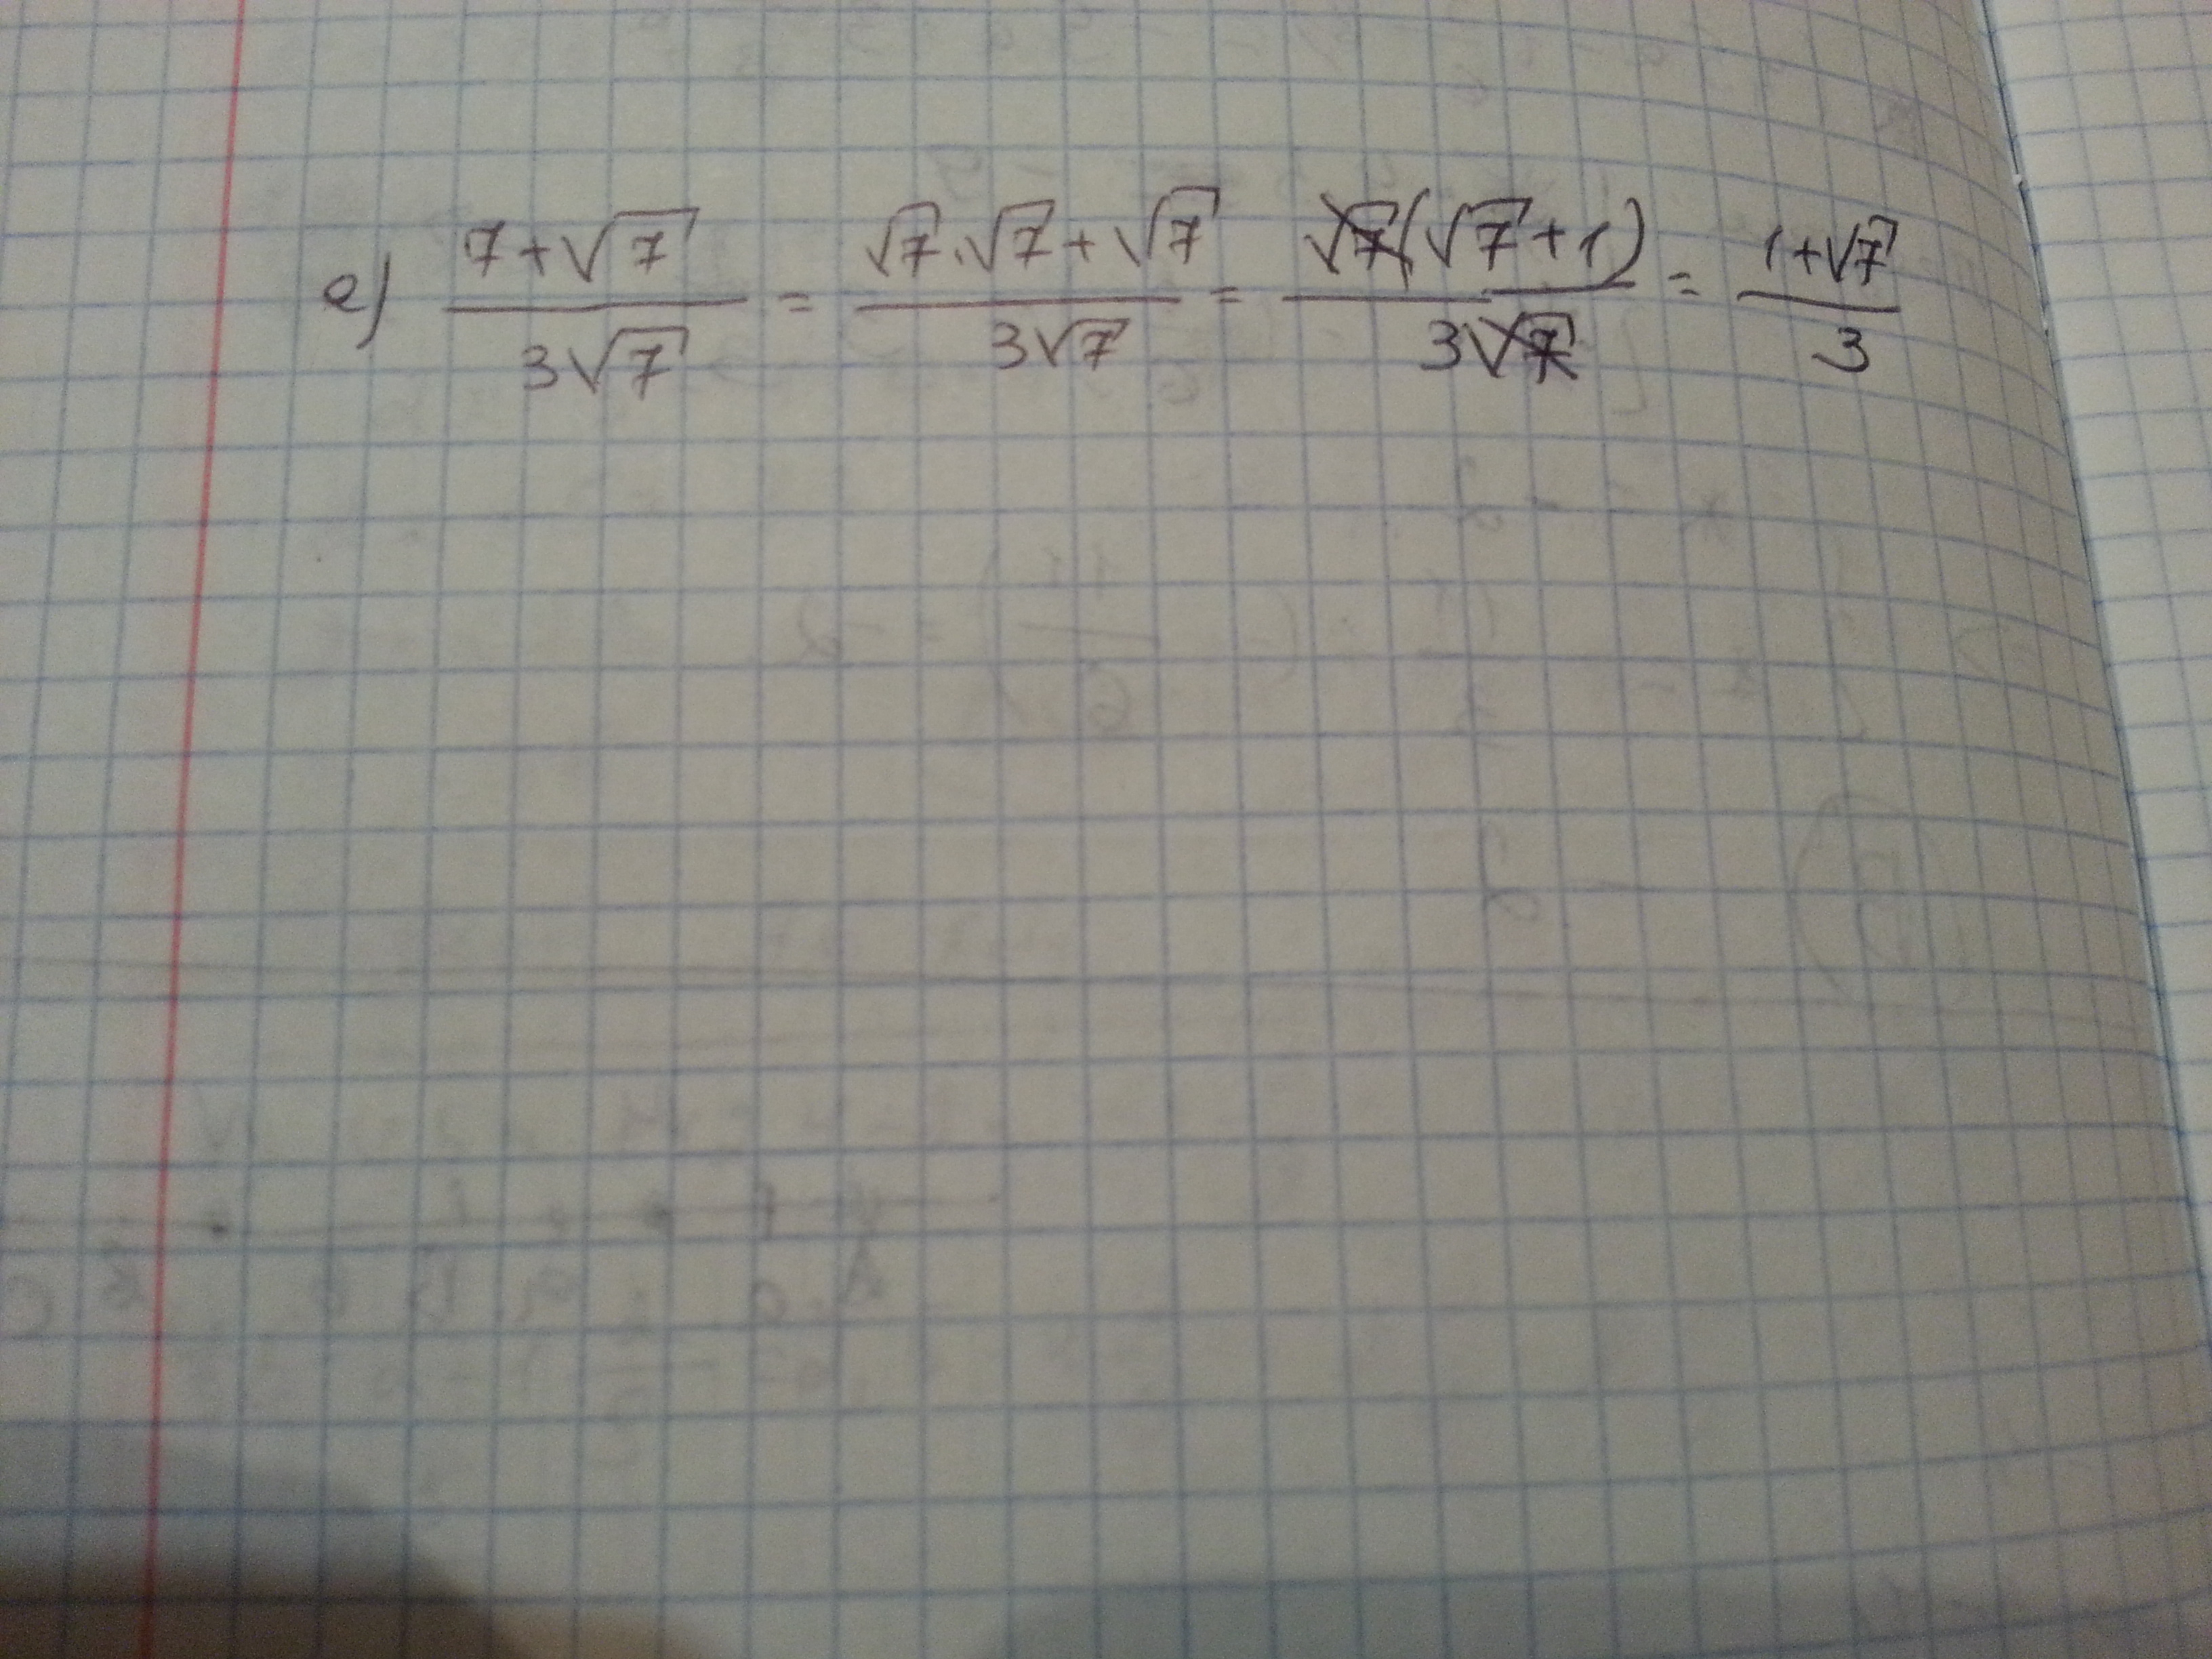 e) (7+√7)/(3√7) = (√7·√7+√7)/(3√7) = (√7(√7+1))/(3√7) = (1+√7)/3